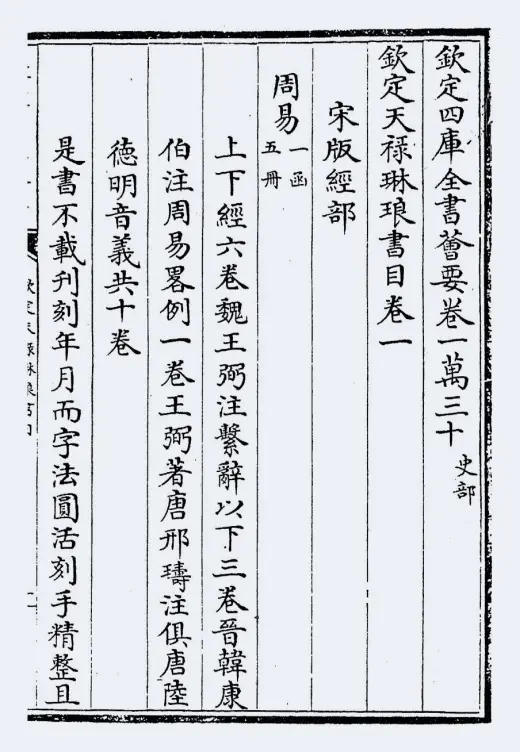 欽定四庫全書薈要卷一萬三十 史部
欽定天禄琳琅書目卷一
宋版經部
周易 一函五冊
上下經六卷魏王弼注繫辭以下三卷晉韓康
伯注周易畧例一卷王弼著唐邢璹注俱唐陸
德明音義共十卷
是書不載刋刻年月而字法圓活刻手精整且